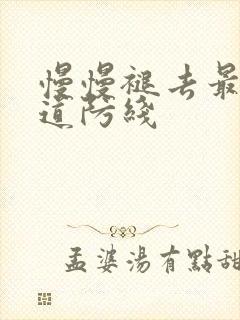 慢慢褪去最
道防綫
孟婆湯有點甜